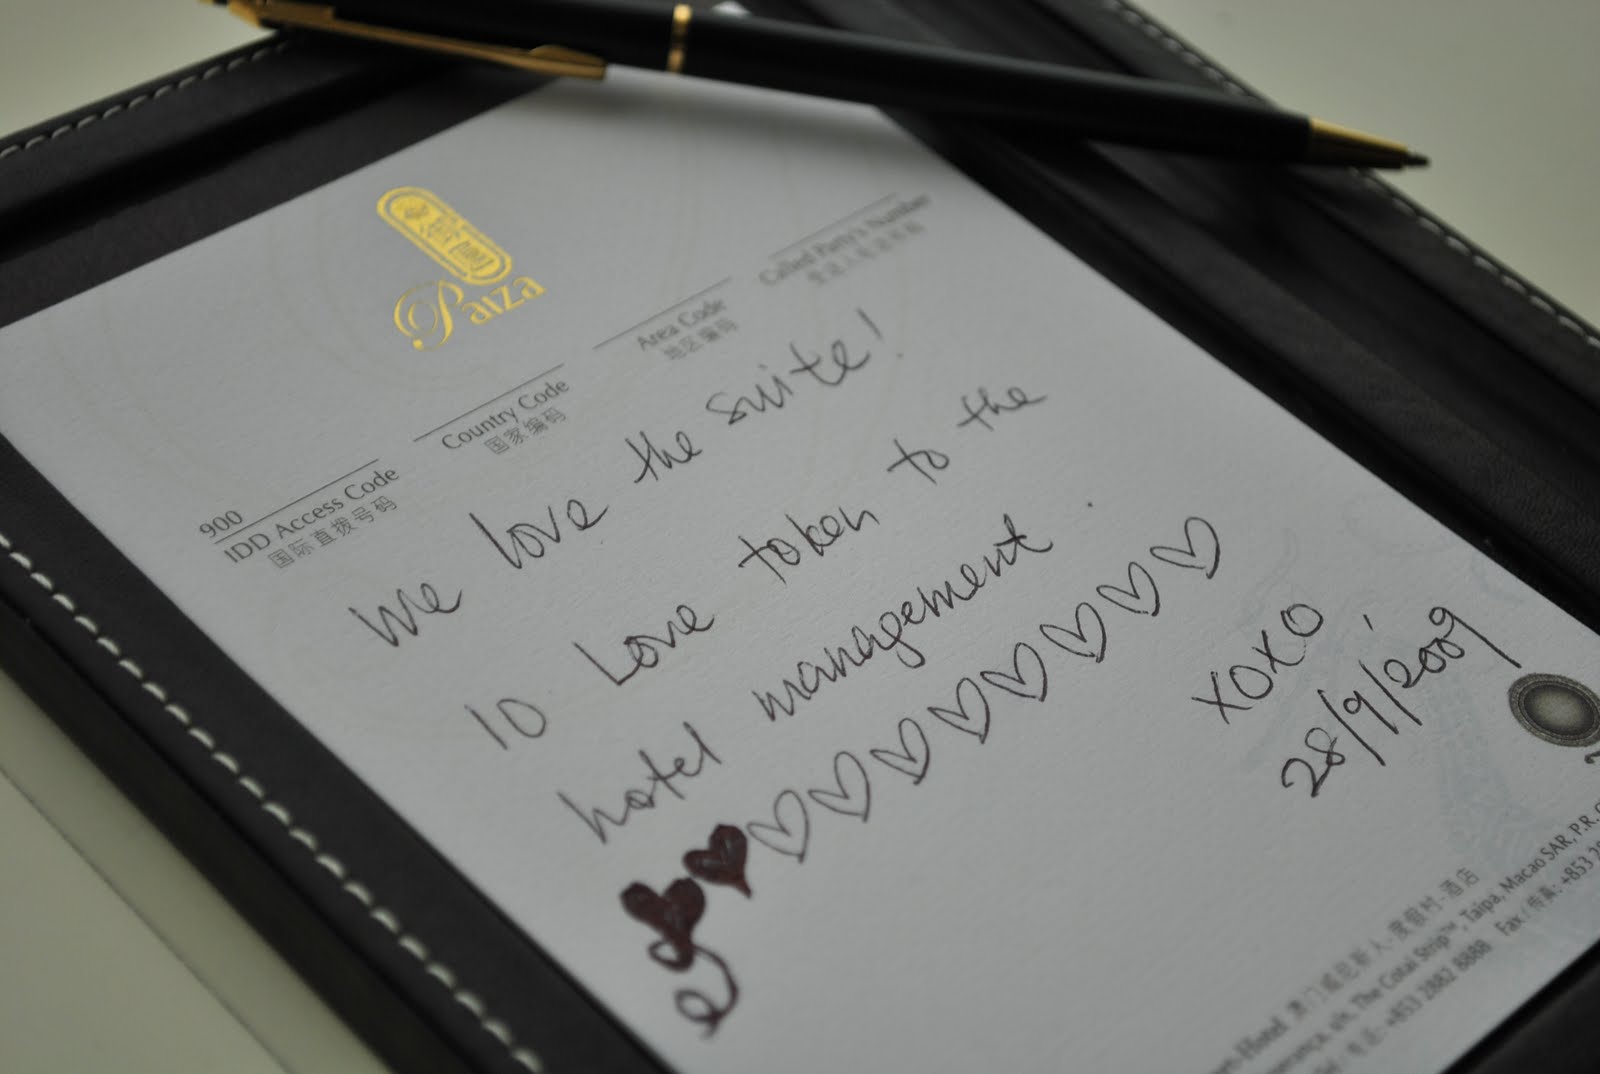 Paiza
Called Party's Number
Area Code
地区编码
Country Code
国家编码
900
IDD Access Code
国际直拨号码
We love the suite!
10 Love token to the
hotel management.
XOXO,
28/9/2009
澳门威尼斯人-度假村-酒店
s/n, The Cotai Strip™, Taipa, Macao SAR, P.R.
+853 2882 8888 Fax / 传真: +853